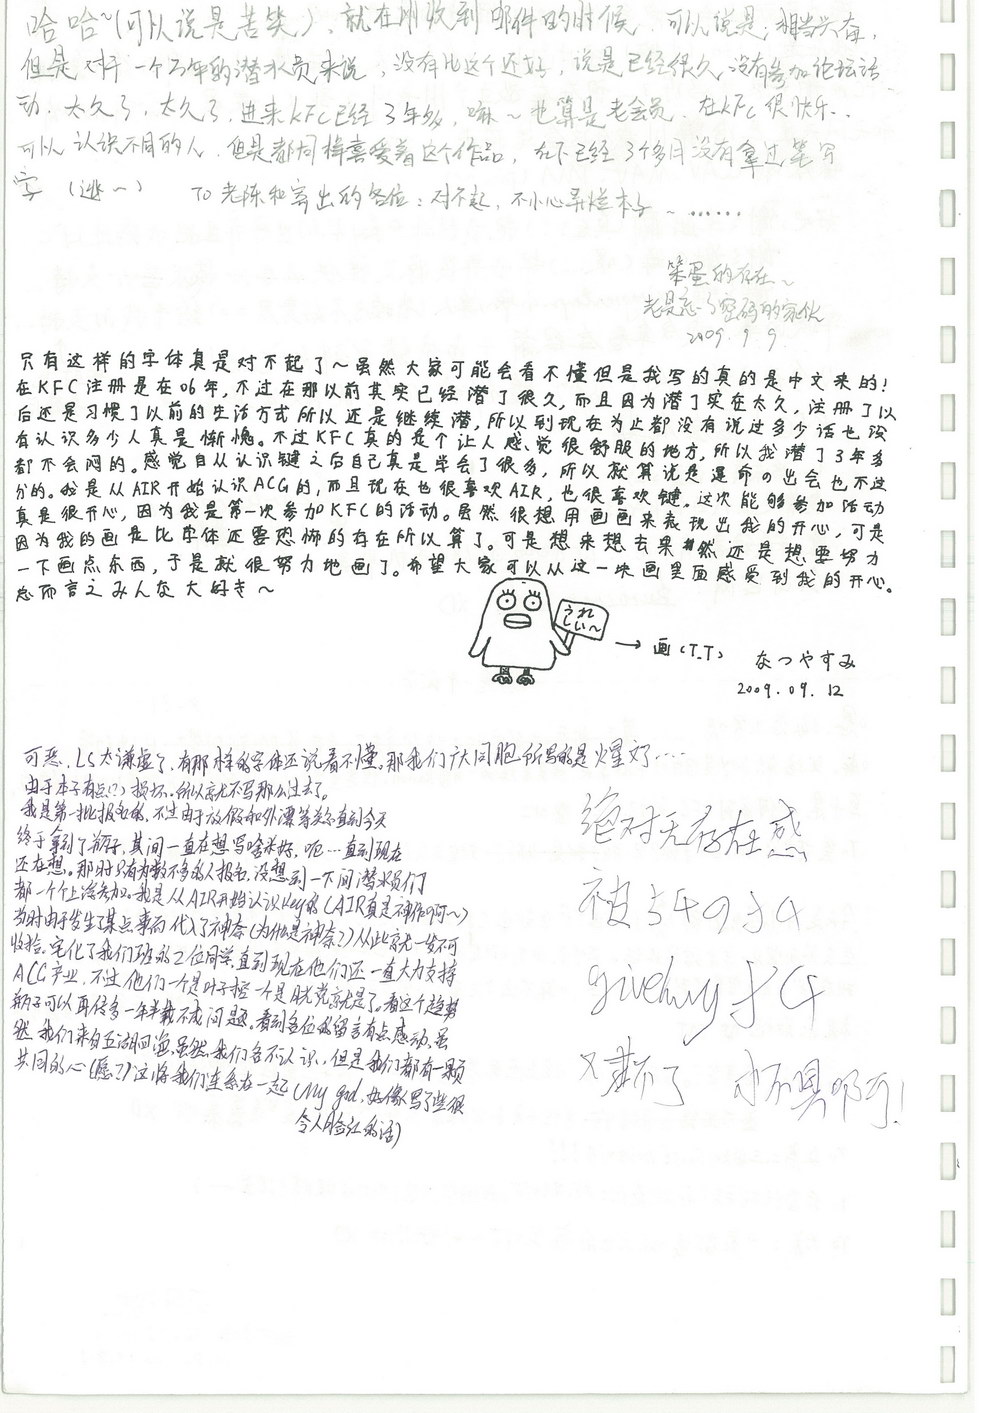 哈哈~(可以说是苦笑)，就在刚收到邮件的时候，可以说是，相当兴奋，
但是对于一个万年的潜水员来说，没有比这个还好，说是已经很久没有参加论坛活
动，太久了，太久了，进来KFC已经3年多，嘛~也算是老会员，在KFC很快乐..
可以认识不同的人，但是都同样喜爱着这个作品，在下已经3个多月没有拿过笔写
字（逃~） TO老陈和寄出的各位：对不起，不小心弄烂本子~……
笨蛋的存在~
老是忘了密码的家伙
2009.9.9.
只有这样的字体真是对不起了~虽然大家可能会看不懂但是我写的真的是中文来的!
在KFC注册是在06年,不过在那以前其实已经潜了很久,而且因为潜了实在太久,注册了以
后还是习惯了以前的生活方式所以还是继续潜,所以到现在为止都没有说过多少话也没
有认识多少人真是惭愧。不过KFC真的是个让人感觉很舒服的地方,所以我潜了3年多
都不会闷的。感觉自从认识键之后自己真是学会了很多,所以就算说是運命の出会也不过
分的。我是从AIR开始认识ACG的,而且现在也很喜欢AIR,也很喜欢键。这次能够参加活动
真是很开心,因为我是第一次参加KFC的活动。虽然很想用画画来表现出我的开心,可是
因为我的画是比字体还要恐怖的存在所以算了。可是想来想去果然还是想要努力
一下画点东西,于是就很努力地画了。希望大家可以从这一块画里面感受到我的开心。
总而言之みんな大好き~
うれ
しい~
→ 画(T_T)
なつやすみ
2009.09.12
可恶，LS太谦虚了,有那样的字体还说看不懂,那我们广大同胞所写的是火星文……
由于本子有点(?)损坏,所以就不写那么过去了。
我是第一批报名的,不过由于放假和外漂等关系直到今天
终于拿到了本子,其间一直在想写啥来好,呃…一直到现在
还在想。那时只有为数不多的人报名,没想到一下间潜水员们
都一个个上浮参加。我是从AIR开始认识key的(AIR真是神作啊~)
当时由于发生了某点事而代入了神奈(为什么是神奈?)从此就一发不可
收拾。宅化了我们班的2位同学,直到现在他们还一直大力支持
ACG产业,不过他们一个是叶子控一个是月党就是了。看这个趋势
本子可以再传多一年半载不成问题。看到各位的留言有点感动,虽
然我们来自五湖四海,虽然我们各不认识,但是我们都有一颗
共同的心(愿?)这将我们连系在一起(My god,好像写了些很
令人脸红的话)
绝对无存在感
被
givehuy
又